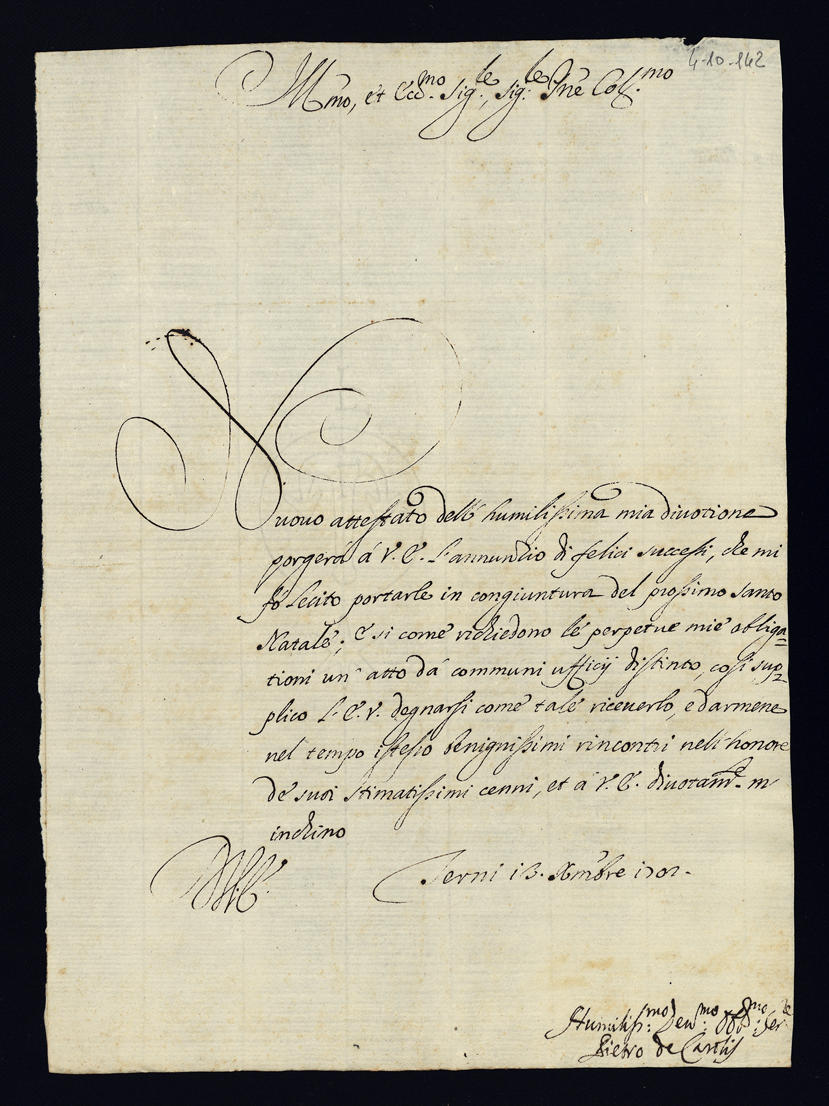 4-10-142
Ill.mo, et Ecc.mo Sig.re, Sig.re Pne Col.mo
Nuouo attestato dell' humilissima mia diuotione
porgerà à V. E. l'annuntio di felici successi, che mi
fò lecito portarle in congiuntura del prossimo santo
Natale; e si come richiedono le perpetue mie obliga=
tioni un' atto dà communi ufficij distinto, così sup=
plico l'E. V. degnarsi come tale riceuerlo, e darmene
nel tempo istesso benignissimi rincontri nell' honore
de suoi stimatissimi cenni, et à V. E. diuotam.e m'
inchino
Terni 13. Xmbre 1701.
Humiliss.mo Deu.mo Obb.mo Ser.re
Pietro de Carolis